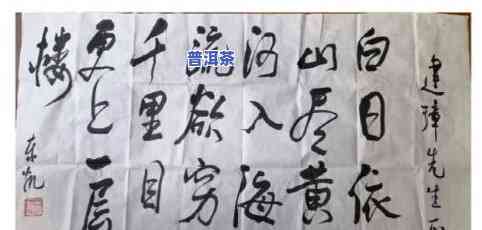 建璋先生
白日依
山尽黄
河入海
流欲穷
千里目
更上一层
楼
东凯
普洱茶